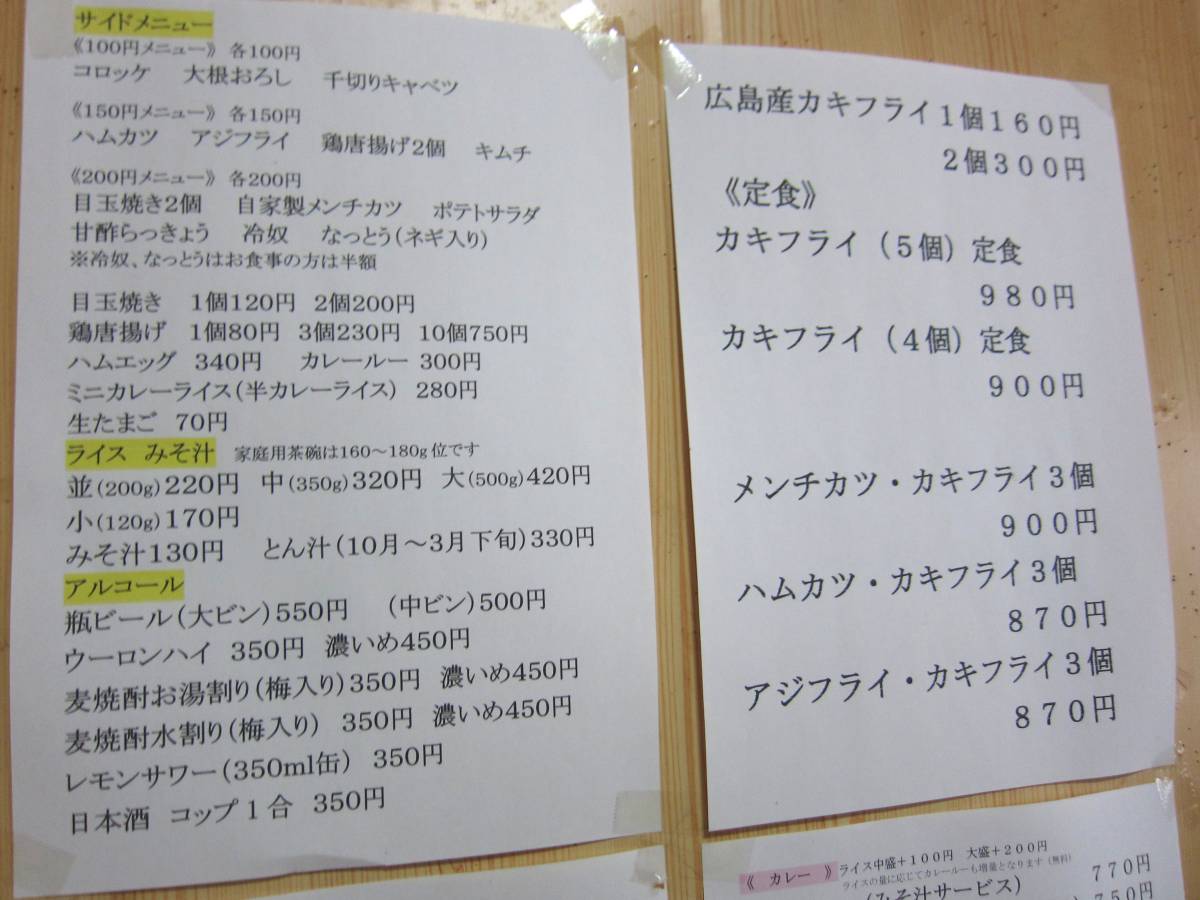 サイドメニュー
《100円メニュー》 各100円
コロッケ 大根おろし 千切りキャベツ
《150円メニュー》 各150円
ハムカツ アジフライ 鶏唐揚げ2個 キムチ
《200円メニュー》 各200円
目玉焼き2個 自家製メンチカツ ポテトサラダ
甘酢らっきょう 冷奴 なっとう(ネギ入り)
※冷奴、なっとうはお食事の方は半額
目玉焼き 1個120円 2個200円
鶏唐揚げ 1個80円 3個230円 10個750円
ハムエッグ 340円 カレールー 300円
ミニカレーライス(半カレーライス) 280円
生たまご 70円
ライス みそ汁 家庭用茶碗は160～180g位です
並(200g)220円 中(350g)320円 大(500g)420円
小(120g)170円
みそ汁130円 とん汁(10月～3月下旬)330円
アルコール
瓶ビール(大ビン)550円 (中ビン)500円
ウーロンハイ 350円 濃いめ450円
麦焼酎お湯割り(梅入り)350円 濃いめ450円
麦焼酎水割り(梅入り) 350円 濃いめ450円
レモンサワー(350ml缶) 350円
日本酒 コップ1合 350円
広島産カキフライ1個160円
2個300円
《定食》
カキフライ(5個)定食
980円
カキフライ(4個)定食
900円
メンチカツ・カキフライ3個
900円
ハムカツ・カキフライ3個
870円
アジフライ・カキフライ3個
870円
《 カレー 》ライス中盛+100円 大盛+200円
ライスの量に応じてカレールーも増量となります(無料)
(みそ汁サービス) 770円
750円